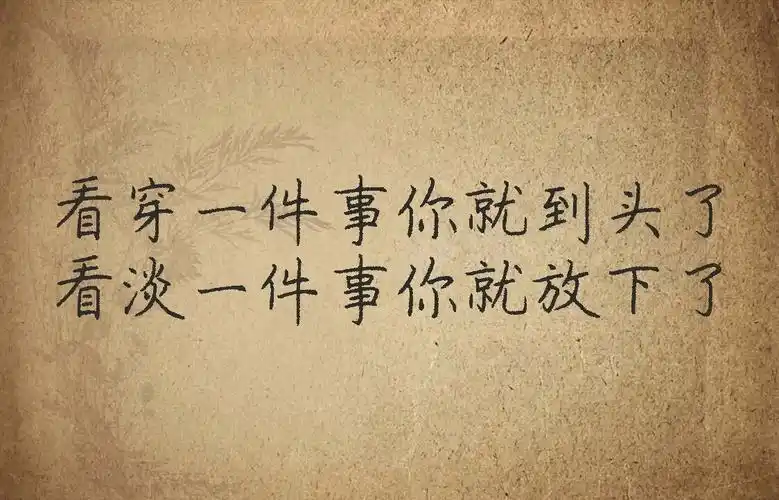 看穿一件事你就到头了
看淡一件事你就放下了